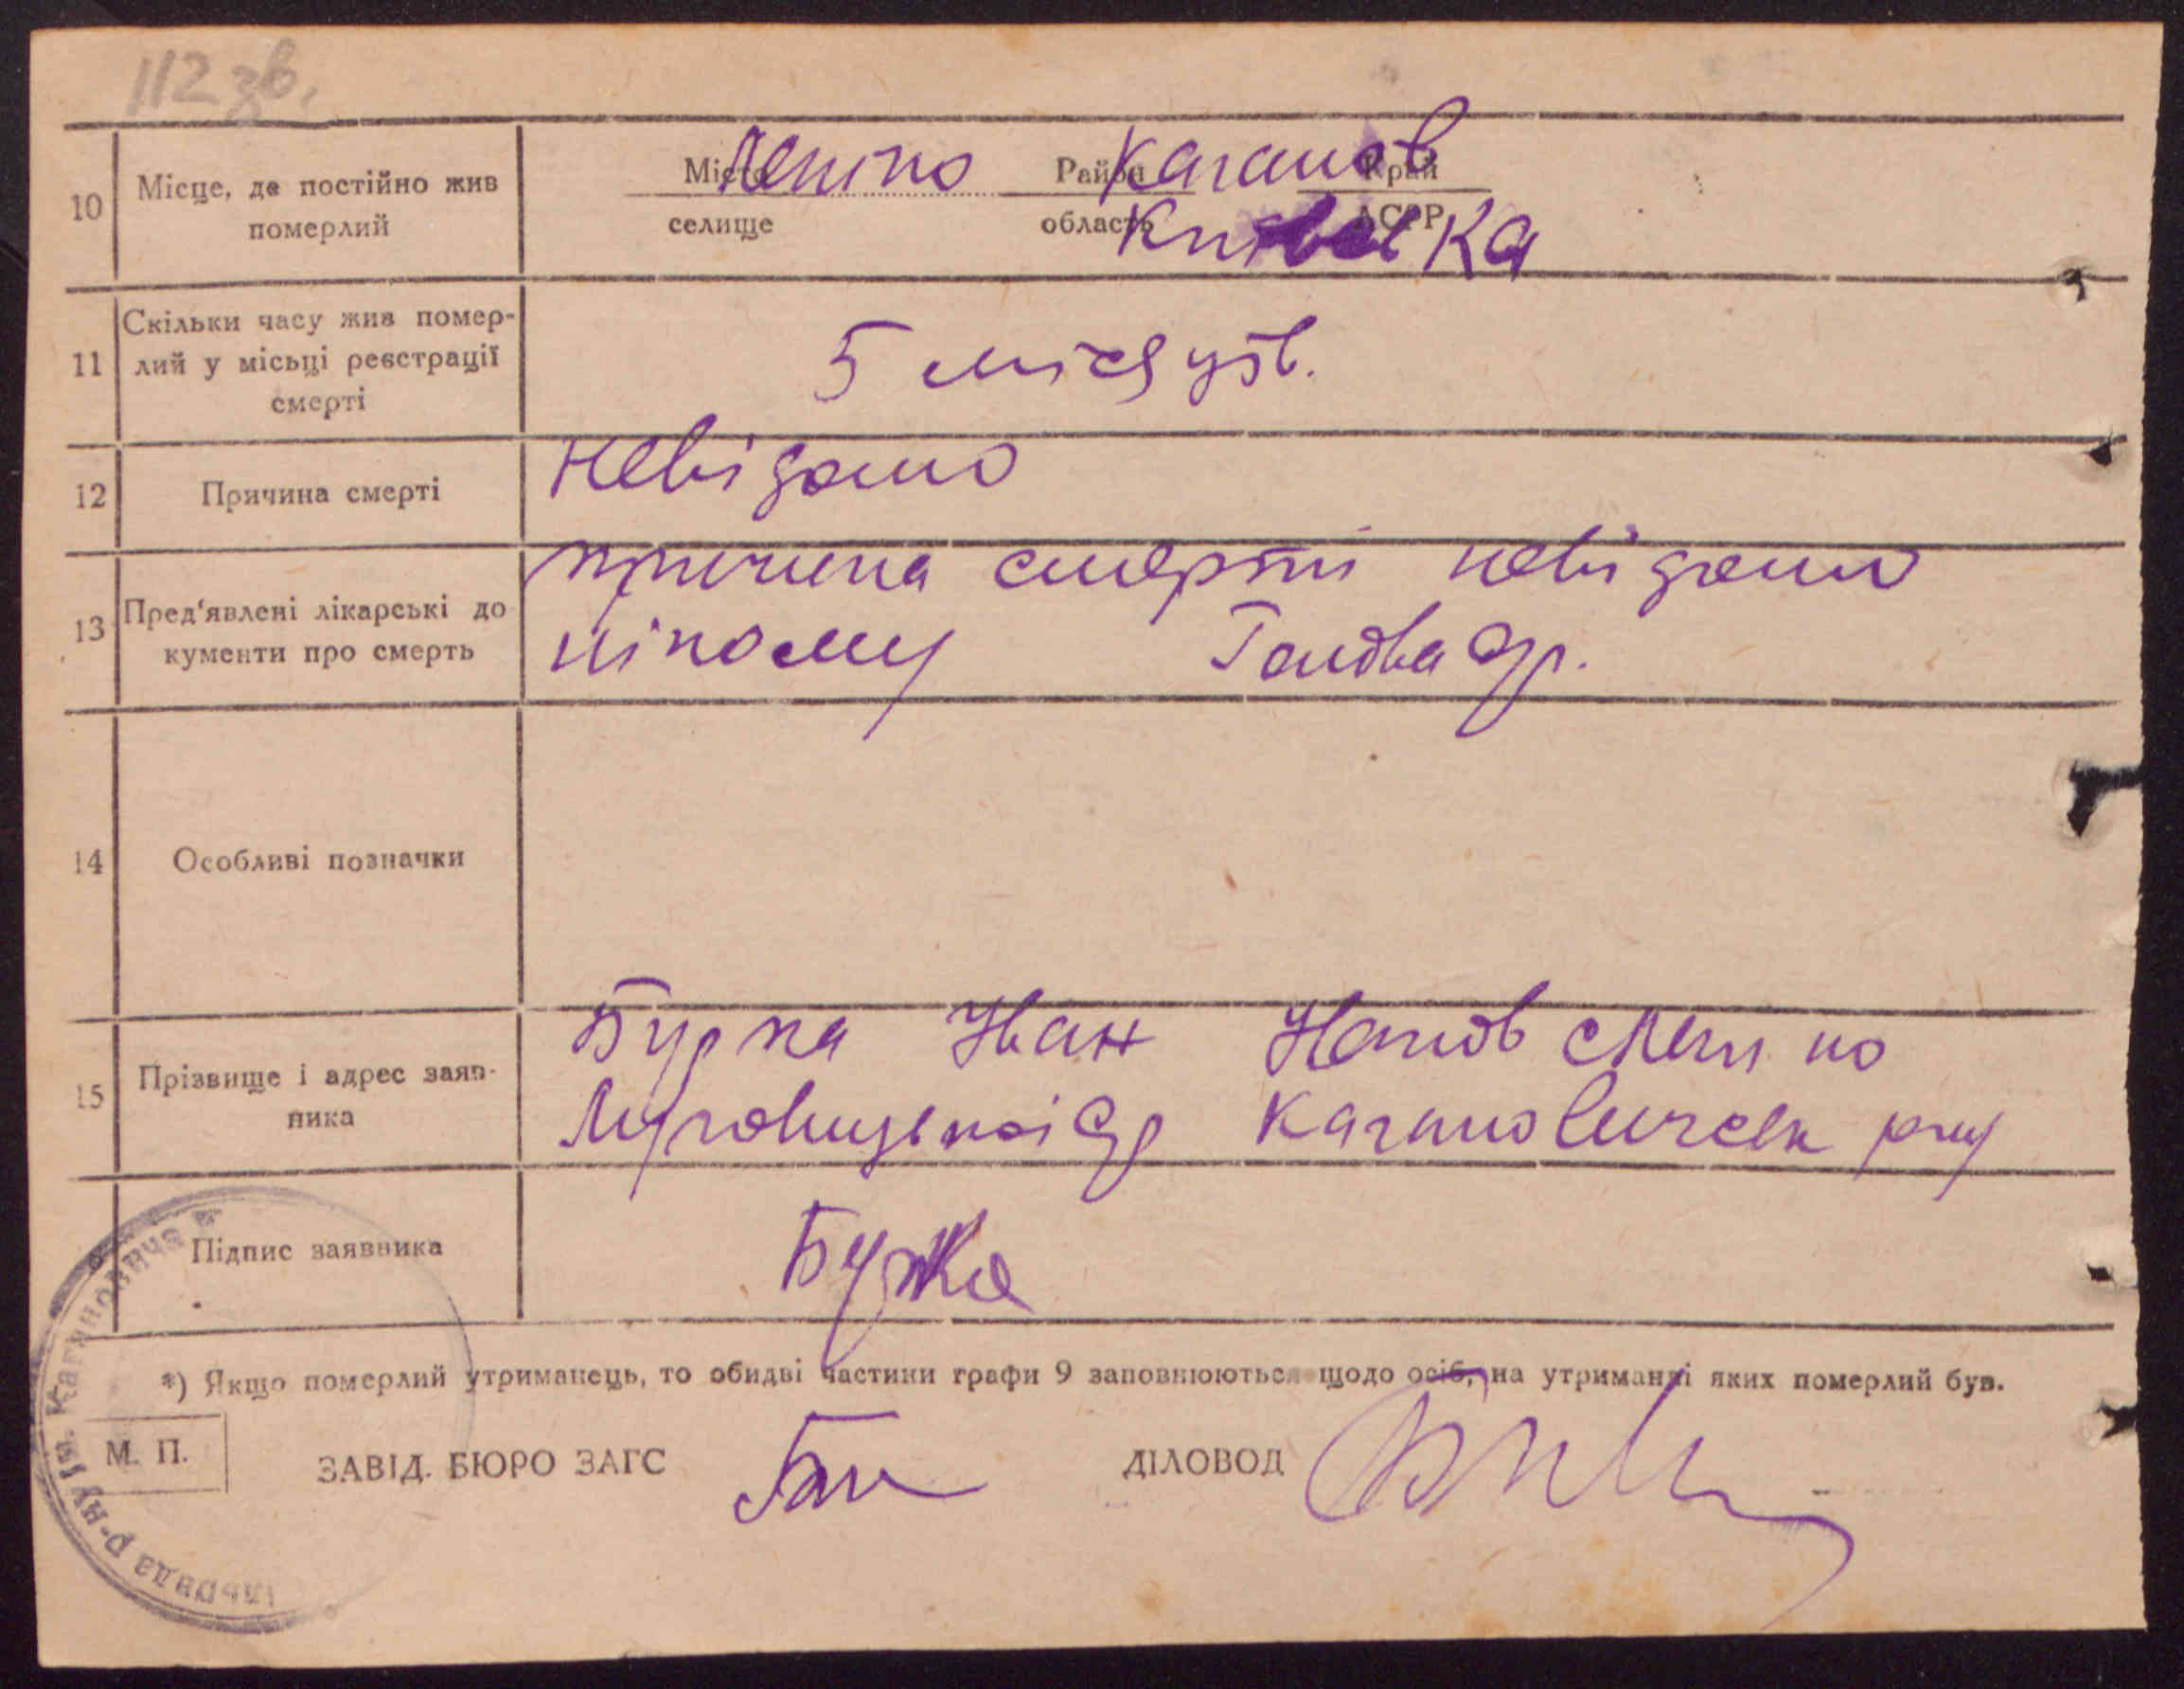 112 зв.
10 Місце, де постійно жив померлий
Місто Леніно Район Каганов Край
селище область Київська АСРР
11 Скільки часу жив помер-
лий у місьці реєстрації
смерті
5 місяців.
12 Причина смерті
невідомо
13 Пред'явлені лікарські до
кументи про смерть
причина смерті невідомо
нікому Голова С/р.
14 Особливі позначки
15 Прізвище і адрес заяв-
ника
Бурка Іван с Леніно
С/р Кагановическ р-ну
Підпис заявника
Бурка
*) Якщо померлий утриманець, то обидві частини графи 9 заповнюються щодо осіб, на утриманні яких померлий був.
М. П.
ЗАВІД. БЮРО ЗАГС
ДІЛОВОД
р-ну ім. Кагановича